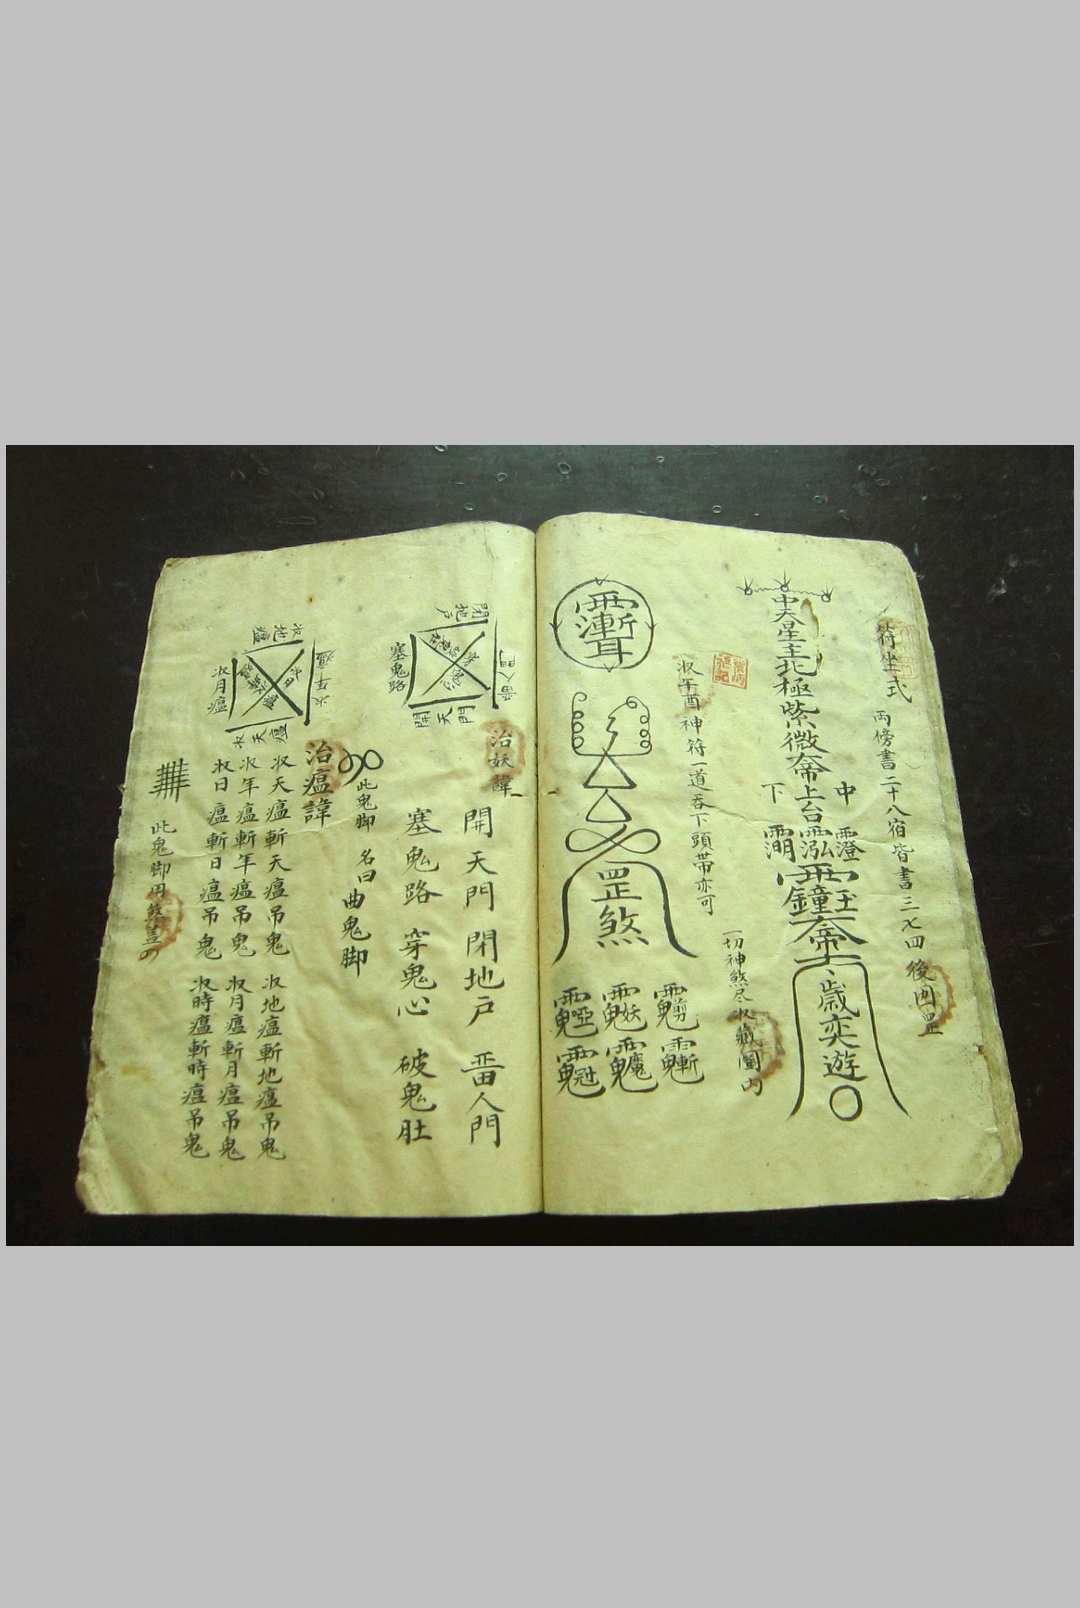 符坐式
兩傍書二十八宿皆書三七四後四罡
中天星主北極紫微帝上台
中
下
歲奕遊
一切神煞尽收藏圍內
收午酉神符一道吞下頭帶亦可
罡煞
治妖諱
開天門 閉地戸 畨人門
塞鬼路 穿鬼心 破鬼肚
閉地戸
塞鬼路
開天門
畨人門
此鬼脚 名曰曲鬼脚
治瘟諱
收天瘟斬天瘟吊鬼 收地瘟斬地瘟吊鬼
收年瘟斬年瘟吊鬼 收月瘟斬月瘟吊鬼
收日瘟斬日瘟吊鬼 收時瘟斬時瘟吊鬼
收地瘟
收月瘟
收天瘟
收年瘟
此鬼脚用